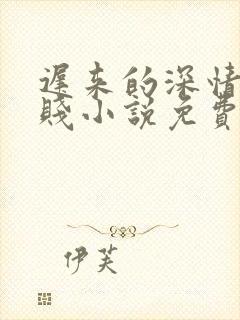 遲来的深情
賤小說免費
伊芙